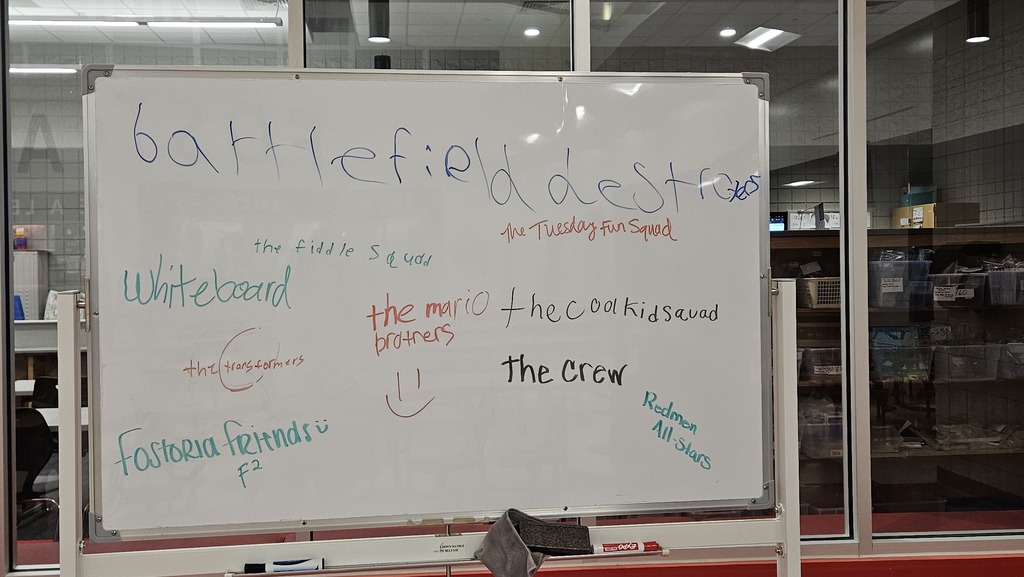 battlefield destroyers
the Tuesday Fun Squad
the fiddle Squad
Whiteboard
the mario
brotners
thecoolkidsauad
the transformers
the crew
Redmen
All-Stars
Fostoria friends
F²
EXPO